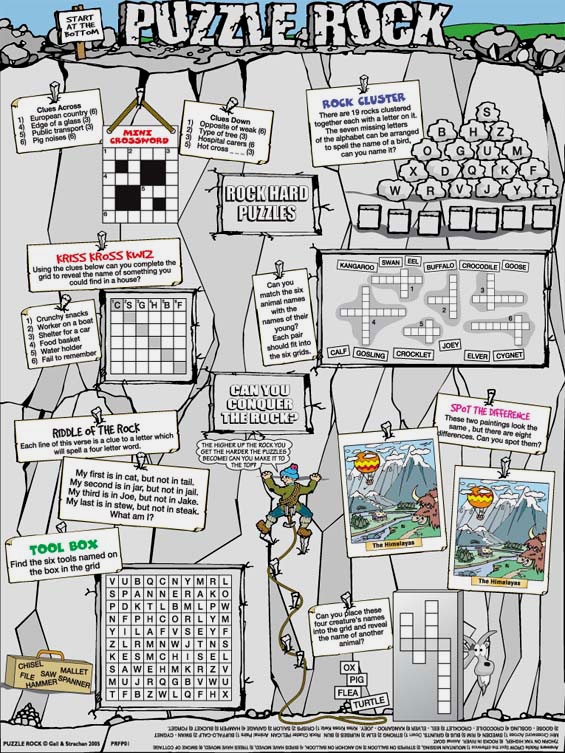 START
AT THE
BOTTOM
PUZZLE ROCK
Clues Across
1) European country (6)
4) Edge of a glass (3)
5) Public transport (3)
6) Pig noises (6)
MINI
CROSSWORD
Clues Down
1) Opposite of weak (6)
2) Type of tree (3)
3) Hospital carers (6)
5) Hot cross _ _ _ (3)
ROCK CLUSTER
There are 19 rocks clustered
together each with a letter on it.
The seven missing letters
of the alphabet can be arranged
to spell the name of a bird,
can you name it?
S
B H Z
O G U M
X D Q K F
W R V J Y T
ROCK HARD
PUZZLES
KRISS KROSS KWIZ
Using the clues below can you complete the
grid to reveal the name of something you
could find in a house?
1) Crunchy snacks
2) Worker on a boat
3) Shelter for a car
4) Food basket
5) Water holder
6) Fail to remember
C S G H B F
Can you
match the
six animal
names with
the names of
their young?
Each pair
should fit into
the six grids.
KANGAROO SWAN EEL BUFFALO CROCODILE GOOSE
1
2
3
4
5
6
CALF GOSLING CROCKLET JOEY ELVER CYGNET
CAN YOU
CONQUER
THE ROCK?
RIDDLE OF THE ROCK
Each line of this verse is a clue to a letter which
will spell a four letter word.
My first is in cat, but not in tail.
My second is in jar, but not in jail.
My third is in Joe, but not in Jake.
My last is in stew, but not in steak.
What am I?
THE HIGHER UP THE ROCK YOU
GET THE HARDER THE PUZZLES
BECOME! CAN YOU MAKE IT TO
THE TOP?
SPOT THE DIFFERENCE
These two paintings look the
same, but there are eight
differences. Can you spot them?
The Himalayas
The Himalayas
TOOL BOX
Find the six tools named on
the box in the grid
V U B Q C N Y M R L
S P A N N E R A K O
P D K T L B M L P W
N F P H C O R L Y M
Y I L A F V S E Y F
Z L R M N W J T N S
K E S M C H I S E L
S A W E H M K R Z V
M U J R Q G B V W U
T F B Z W L Q F H X
CHISEL
FILE SAW MALLET
HAMMER SPANNER
Can you place these
four creature's names
into the grid and reveal
the name of another
animal?
OX
PIG
FLEA
TURTLE
PUZZLE ROCK © Gail & Strachan 2005 PRFP01